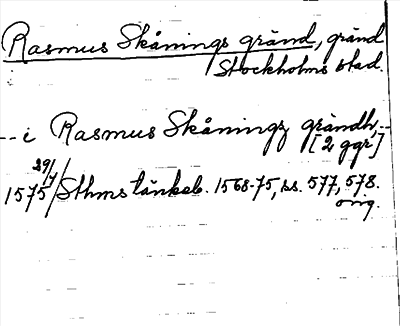 Rasmus Skånings gränd, gränd
Stockholms stad.
-- i Rasmus Skåningz grändh, --
[2 ggr]
29/7
1575 / Sthms tänkeb. 1568-75, ss. 577, 578.
orig.